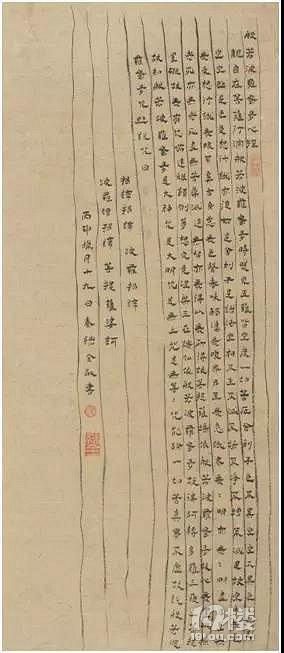 般若波羅蜜多心經
觀自在菩薩行深般若波羅蜜多時照見五蘊皆空度一切苦厄舍利子色不異空空不異色色即是
空空即是色受想行識亦復如是舍利子是諸法空相不生不滅不垢不淨不增不減是故空中無色無
受想行識無眼耳鼻舌身意無色聲香味觸法無眼界乃至無意識界無無明亦無無明盡乃至無老
死亦無老死盡無苦集滅道無智亦無得以無所得故菩提薩埵依般若波羅蜜多故心無罣礙無
罣礙故無有恐怖遠離顛倒夢想究竟涅槃三世諸佛依般若波羅蜜多故得阿耨多羅三藐三菩提
故知般若波羅蜜多是大神咒是大明咒是無上咒是無等等咒能除一切苦真實不虛故說般若波
羅蜜多咒即說咒曰
揭諦揭諦 波羅揭諦
波羅僧揭諦 菩提薩婆訶
臘月十九日 敬書
19楼
19lou.com